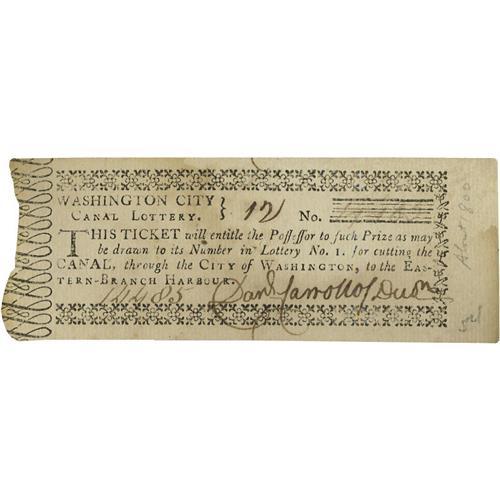 WASHINGTON CITY
CANAL LOTTERY. } 12 No.
THIS TICKET will entitle the Poſſeſſor to ſuch Prize as may
be drawn to its Number in Lottery No. 1. for cutting the
CANAL, through the CITY of WASHINGTON, to the EAS-
TERN-BRANCH HARBOUR.
Danl Carroll of Dudn
About 1800